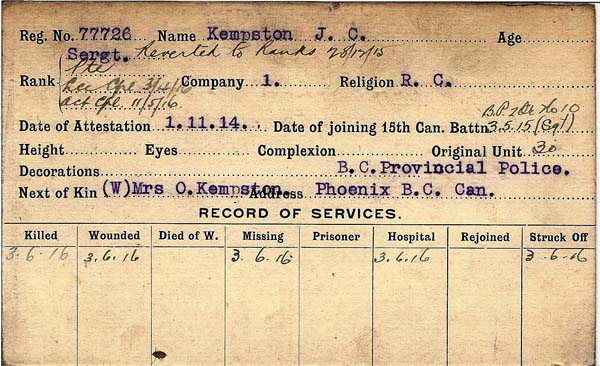 Reg. No. 77726 Name Kempston J. C. Age
Sergt. Reverted to Ranks 28/12/15
Rank Pte Company 1. Religion R. C.
Cpl 3/4/16
Act Cpl 11/5/16
B.P. 2Dr No 10
Date of Attestation 1.11.14. Date of joining 15th Can. Battn 3.5.15 (Sgt)
Height Eyes Complexion Original Unit 30
Decorations B.C. Provincial Police.
Next of Kin (W) Mrs O. Kempston. Address Phoenix B.C. Can.
RECORD OF SERVICES.
Killed Wounded Died of W. Missing Prisoner Hospital Rejoined Struck Off
3.6.16 3.6.16 3.6.16 3.6.16 3-6-16